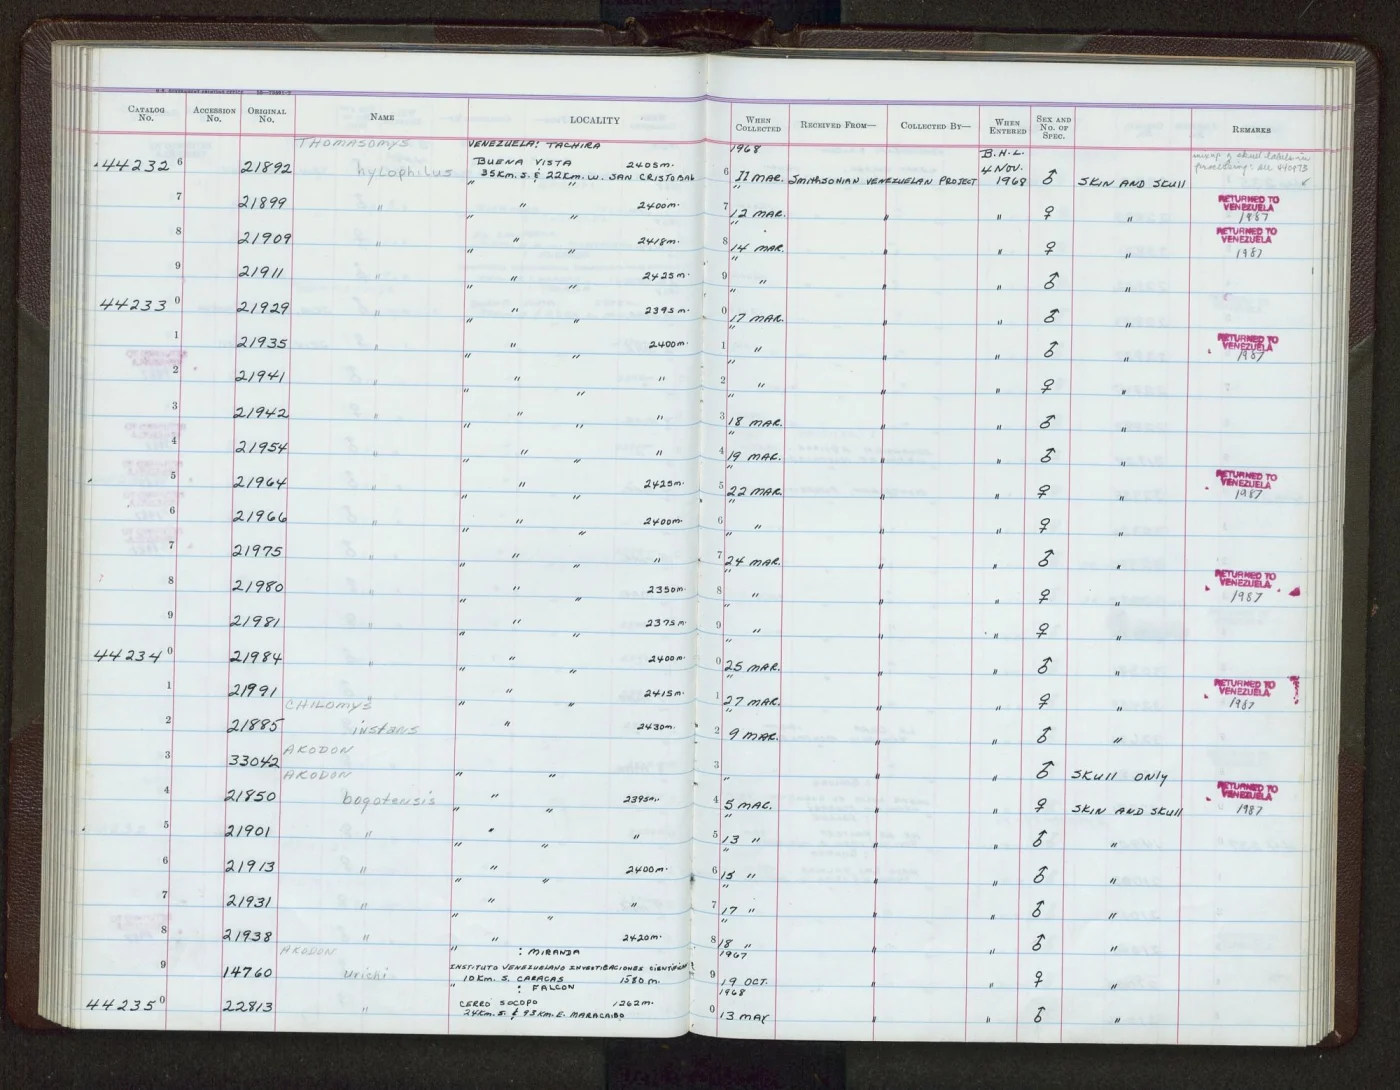 U.S. GOVERNMENT PRINTING OFFICE
CATALOG No. ACCESSION No. ORIGINAL No. NAME LOCALITY WHEN COLLECTED RECEIVED FROM— COLLECTED BY— WHEN ENTERED SEX AND NO. OF SPEC. REMARKS
THOMASOMYS VENEZUELA: TACHIRA 1968 B.H.L.
44232 6 21892 hylophilus BUENA VISTA 2405m. 6 11 MAR. SMITHSONIAN VENEZUELAN PROJECT 4 NOV. 1968 ♂ SKIN AND SKULL
35Km. S. & 22Km. W. SAN CRISTOBAL "
7 21899 " " 2400m. 7 12 MAR. " " ♀ " RETURNED TO VENEZUELA 1987
" " "
8 21909 " " 2418m. 8 14 MAR. " " ♀ " RETURNED TO VENEZUELA 1987
" " "
9 21911 " " 2425m. 9 " " " ♂ "
" " "
44233 0 21929 " " 2395m. 0 17 MAR. " " ♂ "
" " "
1 21935 " " 2400m. 1 " " " ♂ " RETURNED TO VENEZUELA 1987
" " "
2 21941 " " " 2 " " " ♀ "
" " "
3 21942 " " " 3 18 MAR. " " ♂ "
" " "
4 21954 " " " 4 19 MAR. " " ♂ "
" " "
5 21964 " " 2425m. 5 22 MAR. " " ♀ " RETURNED TO VENEZUELA 1987
" " "
6 21966 " " 2400m. 6 " " " ♀ "
" " "
7 21975 " " " 7 24 MAR. " " ♂ "
" " "
8 21980 " " 2350m. 8 " " " ♀ " RETURNED TO VENEZUELA 1987
" " "
9 21981 " " 2375m. 9 " " " ♀ "
" " "
44234 0 21984 " " 2400m. 0 25 MAR. " " ♂ "
" " "
1 21991 " " 2415m. 1 27 MAR. " " ♀ " RETURNED TO VENEZUELA 1987
CHILOMYS " " "
2 21885 instans " 2430m. 2 9 MAR. " " ♂ "
AKODON
3 33042 " " 3 " " " ♂ SKULL ONLY
AKODON
4 21850 bogotensis " 2395m. 4 5 MAR. " " ♀ SKIN AND SKULL RETURNED TO VENEZUELA 1987
" " "
5 21901 " " " 5 13 " " " ♂ "
" " "
6 21913 " " 2400m. 6 15 " " " ♂ "
" " "
7 21931 " " " 7 17 " " " ♂ "
" " "
8 21938 " " 2420m. 8 18 " " " ♂ "
AKODON " : MIRANDA 1967
9 14760 urichi INSTITUTO VENEZUELANO INVESTIGACIONES CIENTIFICAS 9 19 OCT. " " ♀ "
10Km. S. CARACAS 1580m.
" : FALCON 1968
44235 0 22813 " CERRO SOCOPO 1262m. 0 13 MAY " " ♂ "
24Km. S. & 93Km. E. MARACAIBO